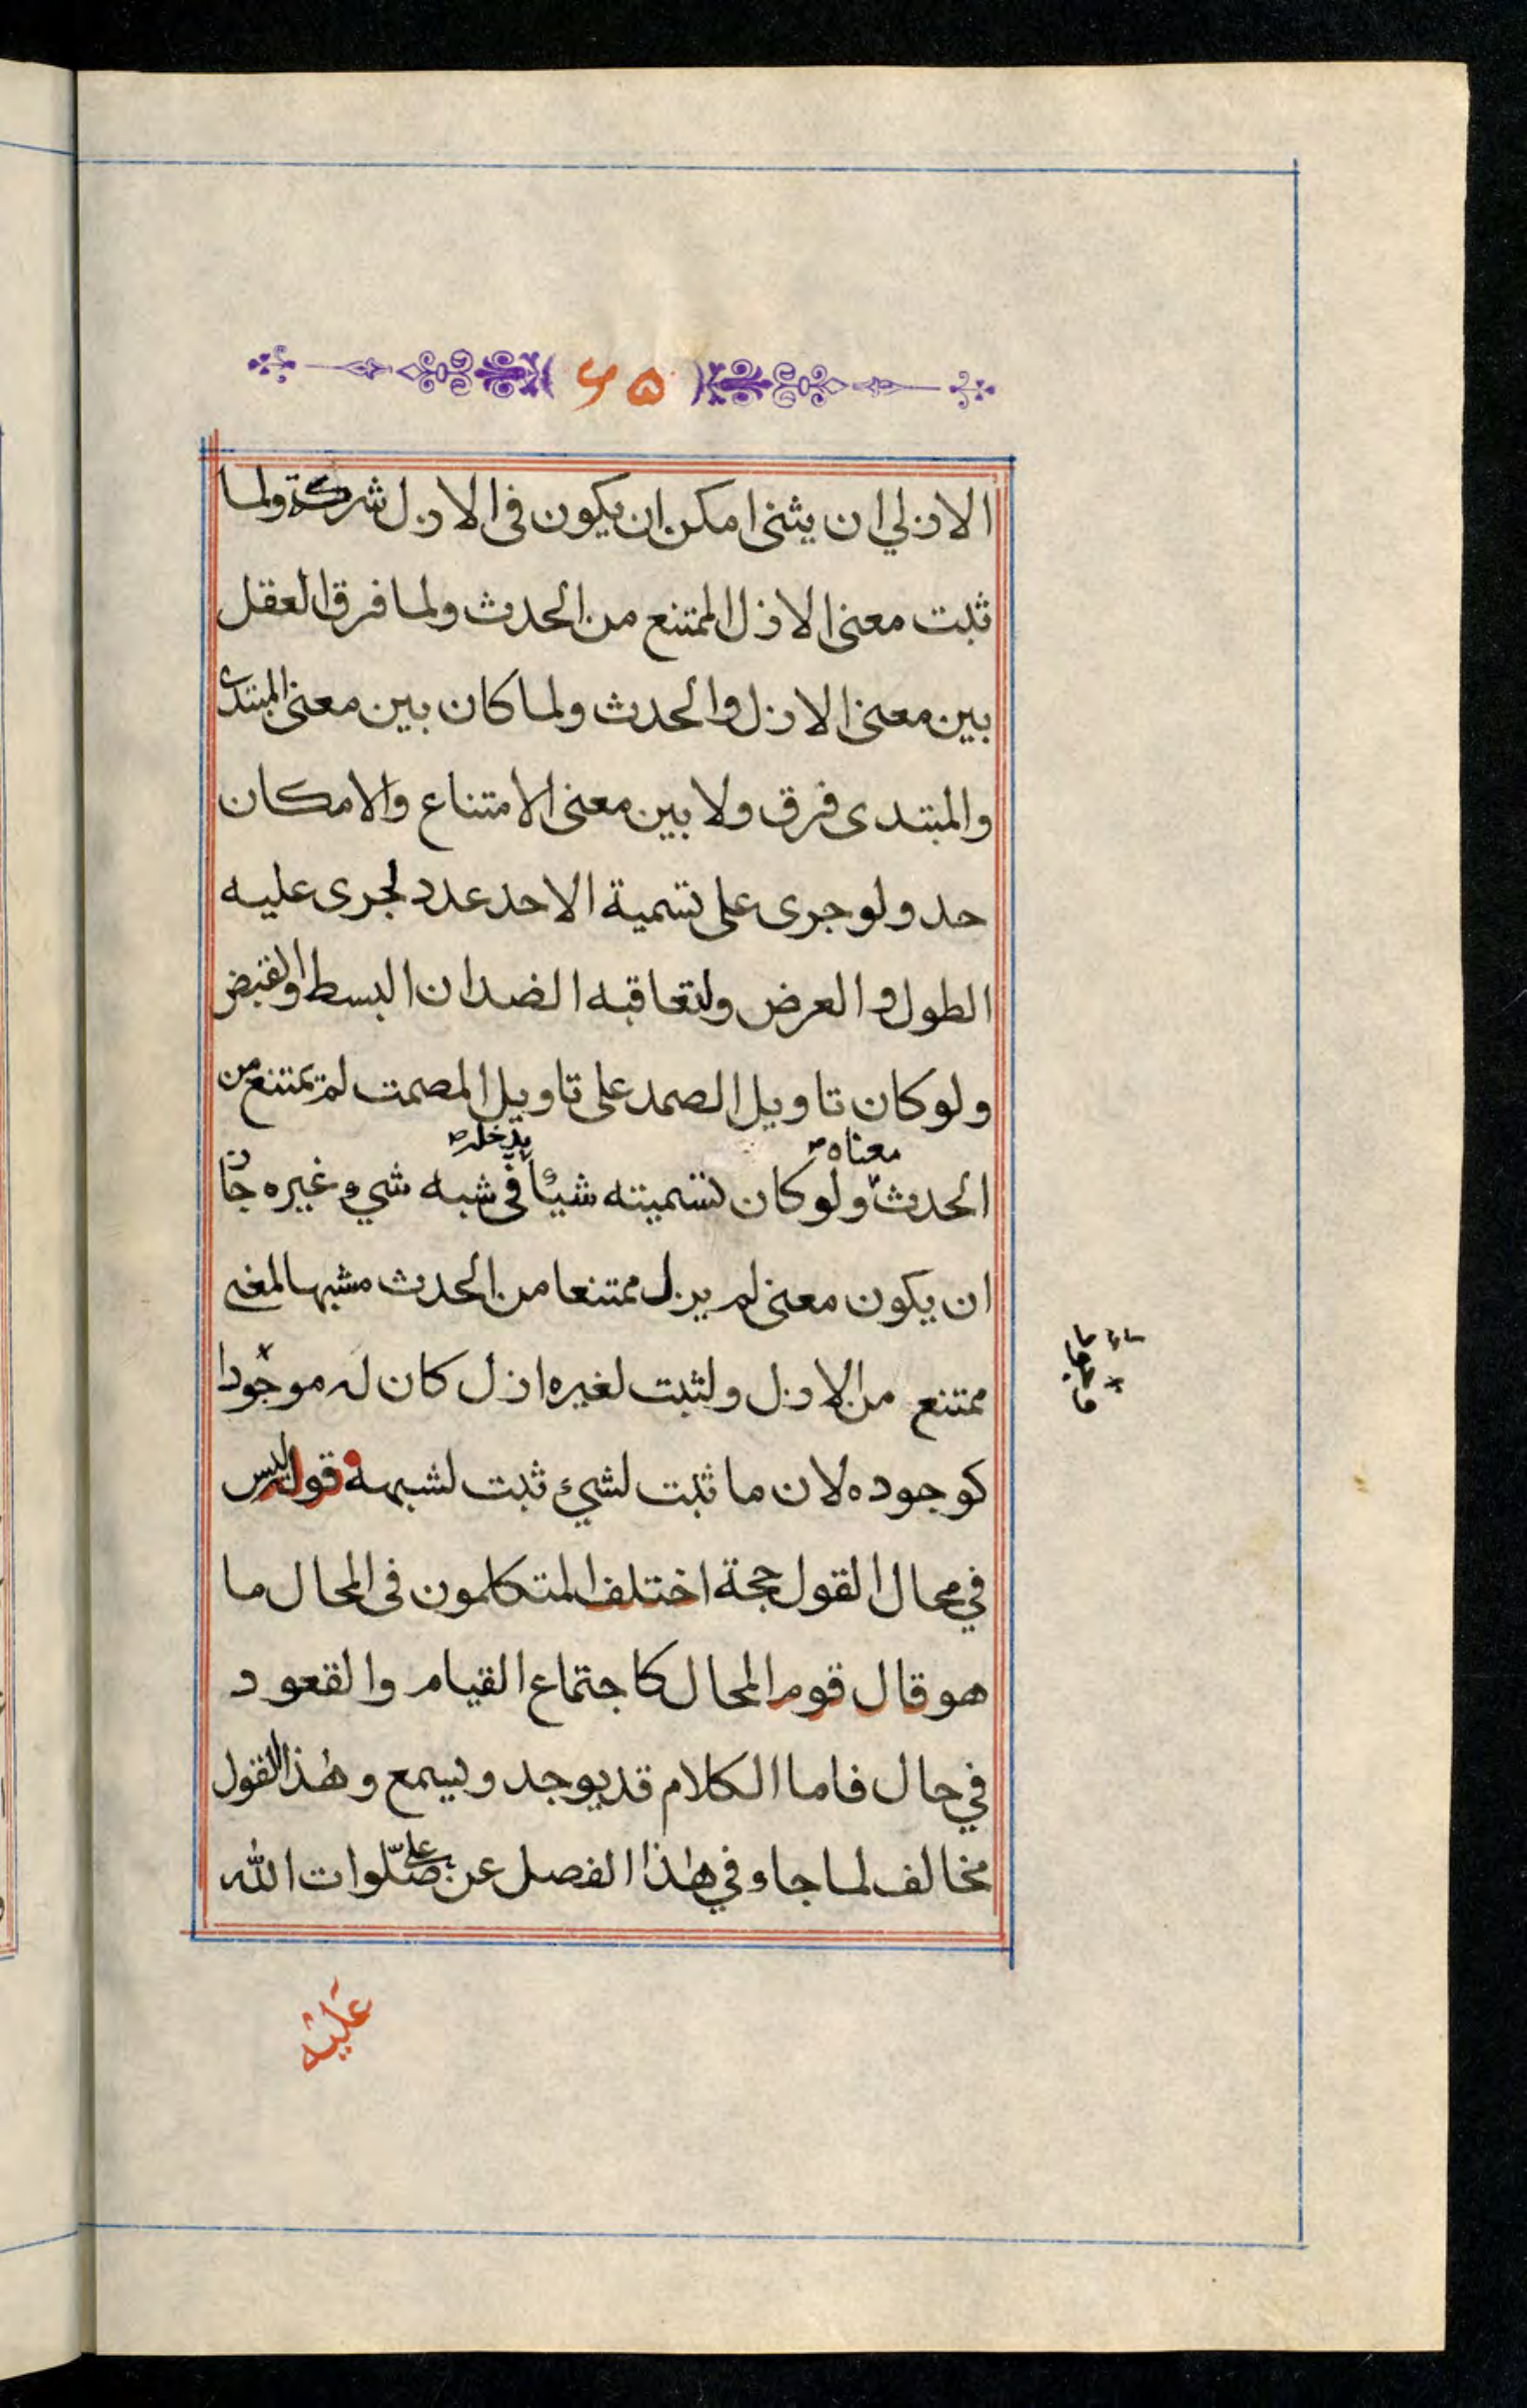 ٦٥
الازلي ان يثنى امكن ان يكون في الازل شركة ولما
ثبت معنى الازل الممتنع من الحدث ولما فرق العقل
بين معنى الازل والحدث ولما كان بين معنى المبتدئ
والمبتدى فرق ولا بين معنى الامتناع والامكان
حد ولو جرى على تسمية الاحد عدد لجرى عليه
الطول والعرض ولتعاقبه الضدان البسط والقبض
ولو كان تاويل الصمد على تاويل المصمت لم يمتنع من
معناه يدخله
الحدث ولو كان تسميته شيئا في شبه شيء غيره جاز
ان يكون معنى لم يزل ممتنعا من الحدث مشبها لمعنى
ممتنع من الازل ولثبت لغيره ازل كان له موجودا
كوجوده لان ما ثبت لشيء ثبت لشبهه قوله ليس
في محال القول حجة اختلف المتكلمون في المحال ما
هو قال قوم المحال كاجتماع القيام والقعود
في حال فاما الكلام قد يوجد ويسمع وهذا القول
مخالف لما جاء في هذا الفصل عن علي صلوات الله
عليه